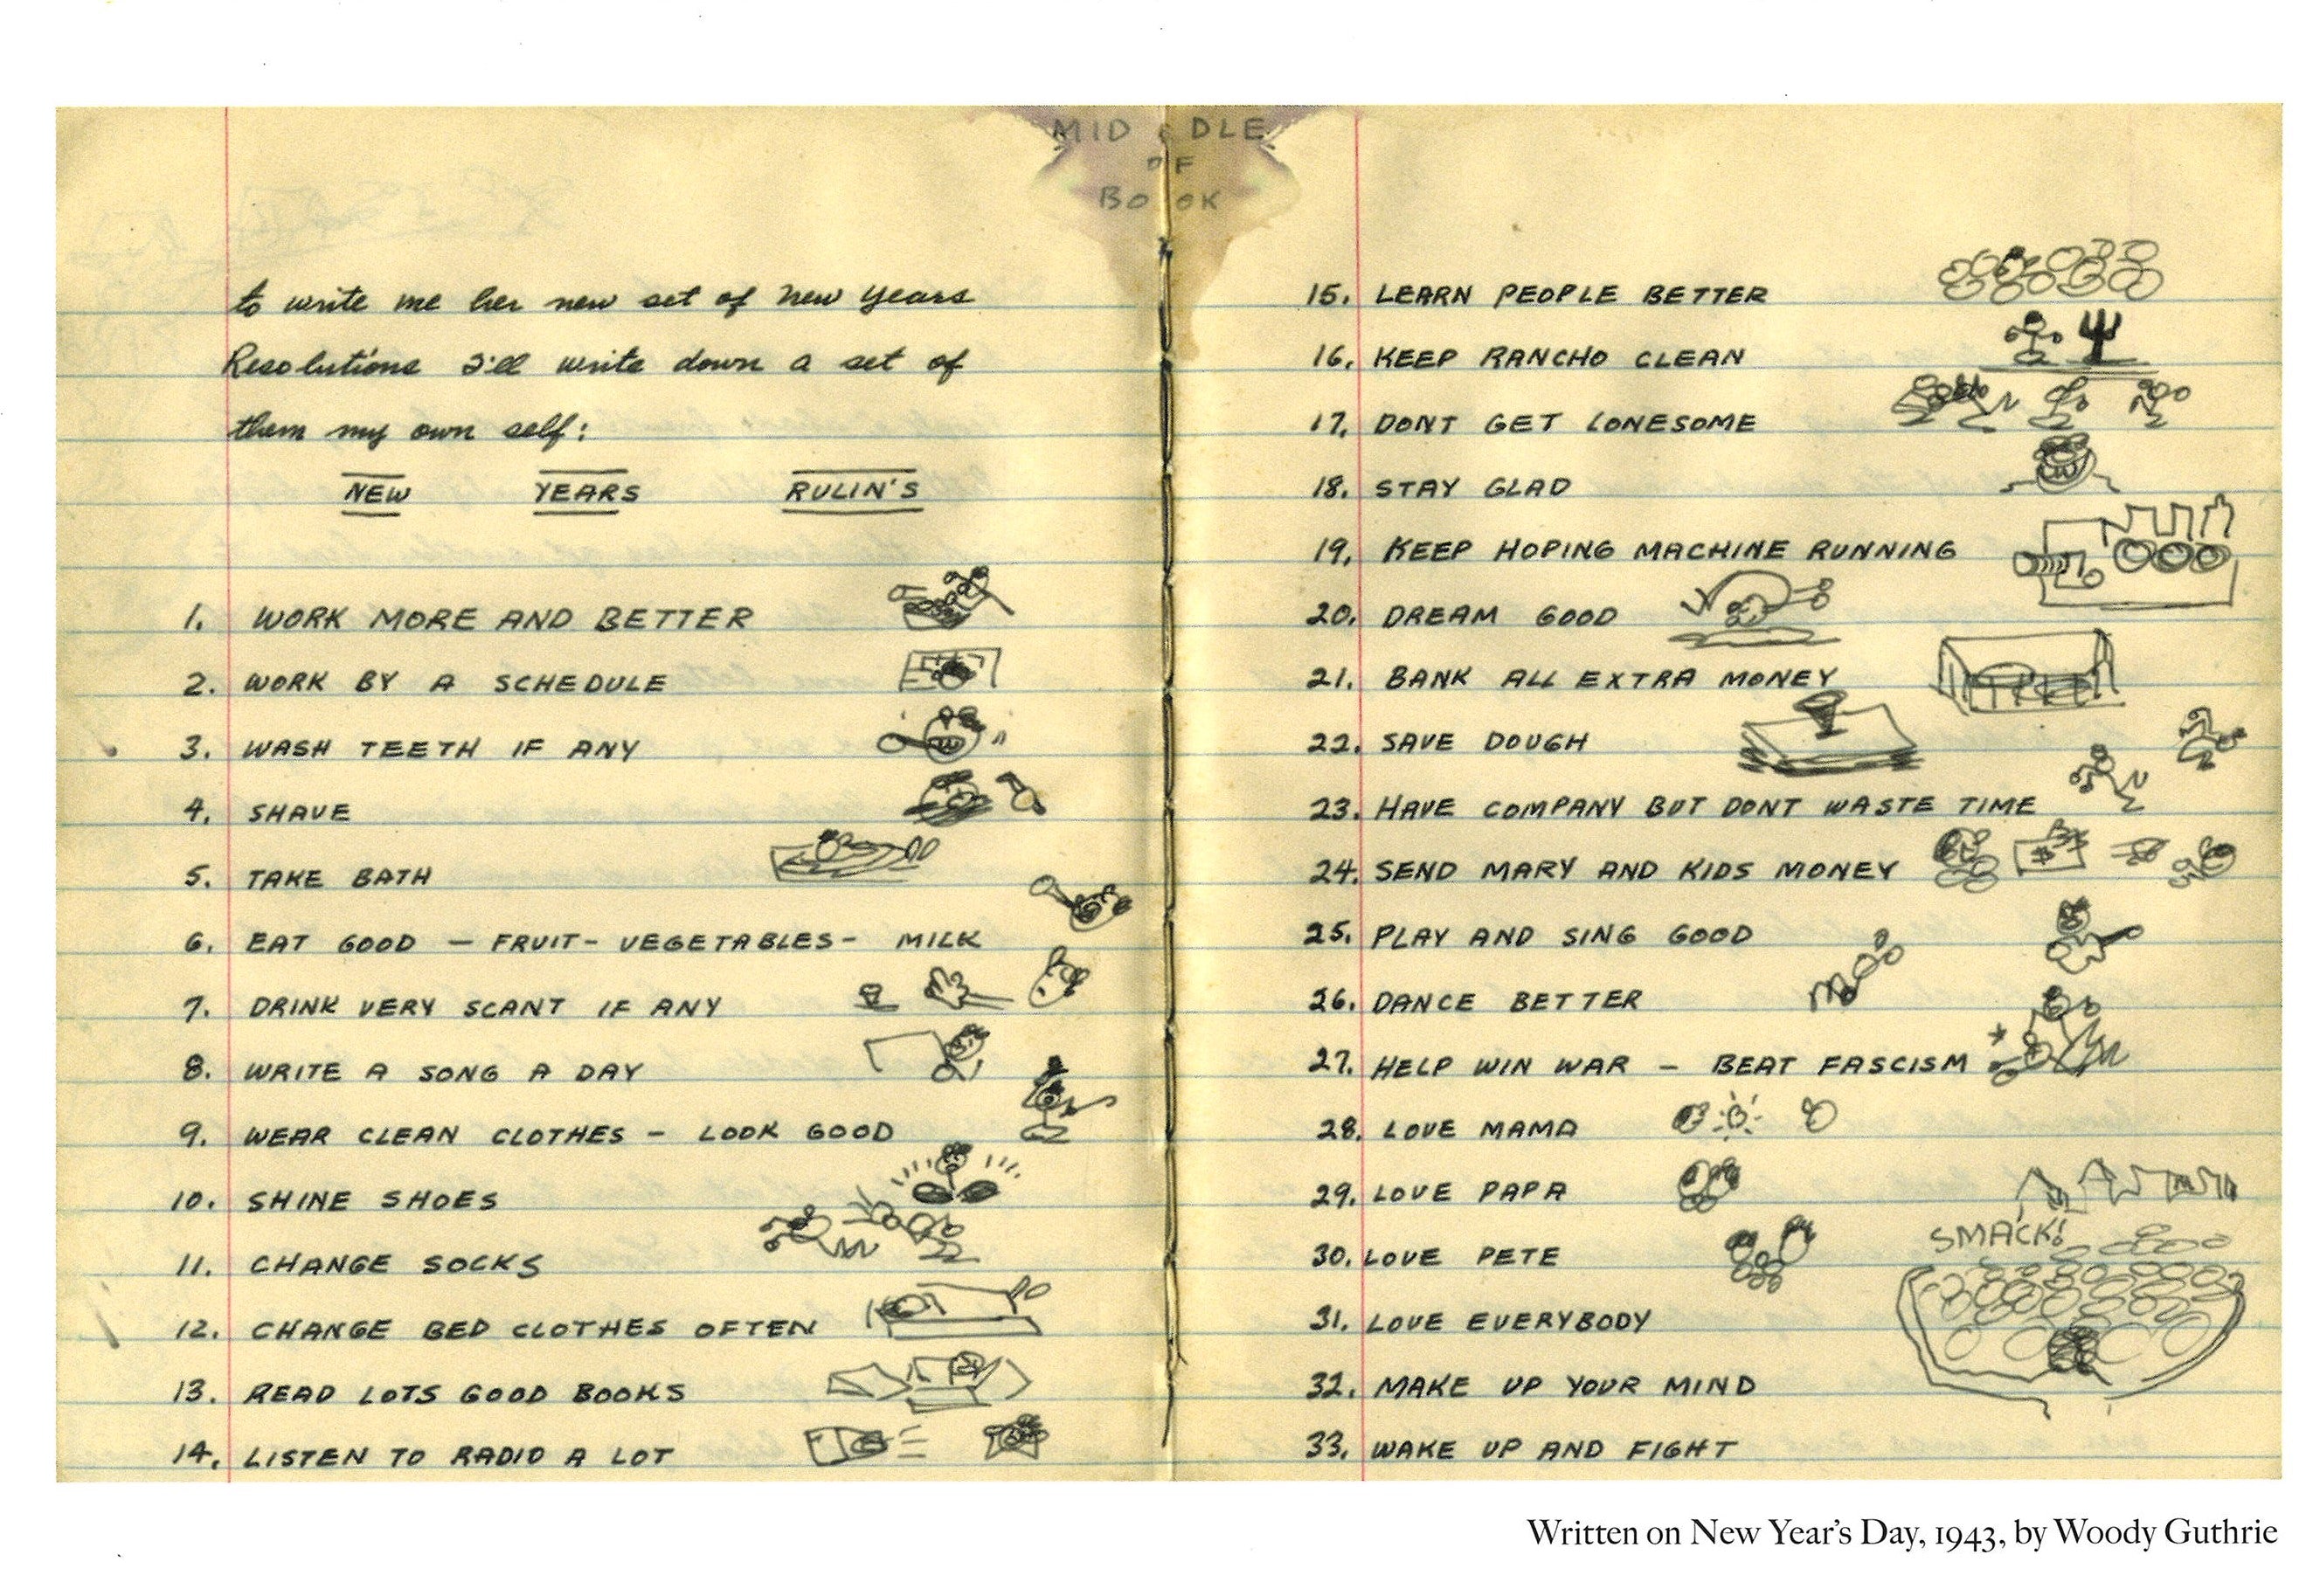 MIDDLE
OF
BOOK
to write me her new set of new years
Resolutions I'll write down a set of
them my own self:
NEW YEARS RULIN'S
1. WORK MORE AND BETTER
2. WORK BY A SCHEDULE
3. WASH TEETH IF ANY
4. SHAVE
5. TAKE BATH
6. EAT GOOD — FRUIT - VEGETABLES - MILK
7. DRINK VERY SCANT IF ANY
8. WRITE A SONG A DAY
9. WEAR CLEAN CLOTHES — LOOK GOOD
10. SHINE SHOES
11. CHANGE SOCKS
12. CHANGE BED CLOTHES OFTEN
13. READ LOTS GOOD BOOKS
14. LISTEN TO RADIO A LOT
15. LEARN PEOPLE BETTER
16. KEEP RANCHO CLEAN
17. DONT GET LONESOME
18. STAY GLAD
19. KEEP HOPING MACHINE RUNNING
20. DREAM GOOD
21. BANK ALL EXTRA MONEY
22. SAVE DOUGH
23. HAVE COMPANY BUT DONT WASTE TIME
24. SEND MARY AND KIDS MONEY
25. PLAY AND SING GOOD
26. DANCE BETTER
27. HELP WIN WAR — BEAT FASCISM
28. LOVE MAMA
29. LOVE PAPA
30. LOVE PETE
SMACK!
31. LOVE EVERYBODY
32. MAKE UP YOUR MIND
33. WAKE UP AND FIGHT
Written on New Year's Day, 1943, by Woody Guthrie